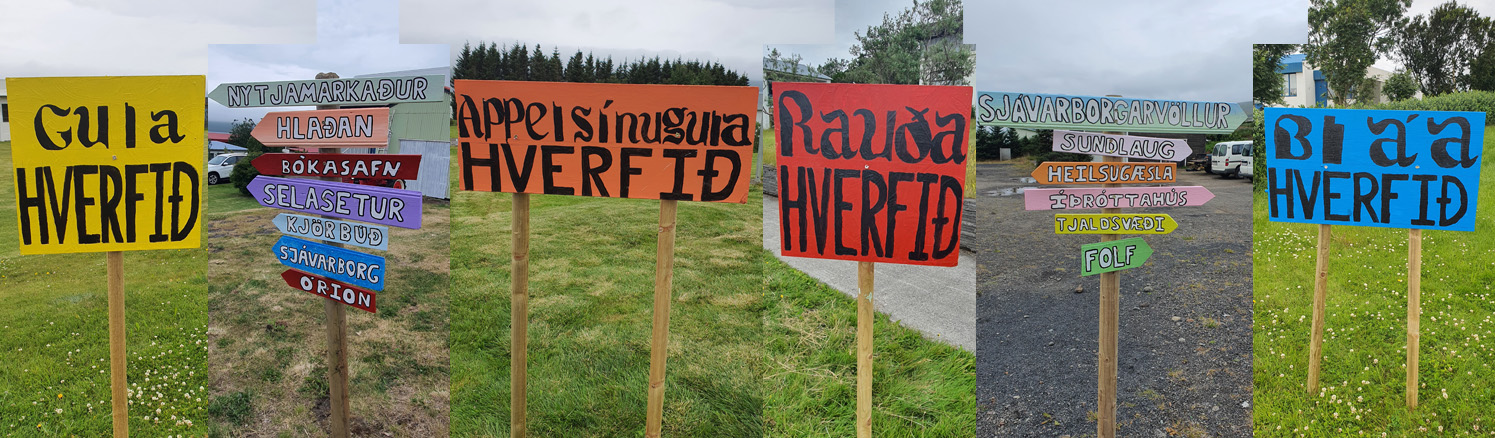 Gula
HVERFIÐ
NYTJAMARKAÐUR
HLAÐAN
BÓKASAFN
SELASETUR
KJÖRBUÐ
SJÁVARBORG
ÓRION
Appelsínugula
HVERFIÐ
Rauða
HVERFIÐ
SJÁVARBORGARVÖLLUR
SUNDLAUG
HEILSUGÆSLA
ÍÞRÓTTAHÚS
TJALDSVÆÐI
FOLF
Bláa
HVERFIÐ